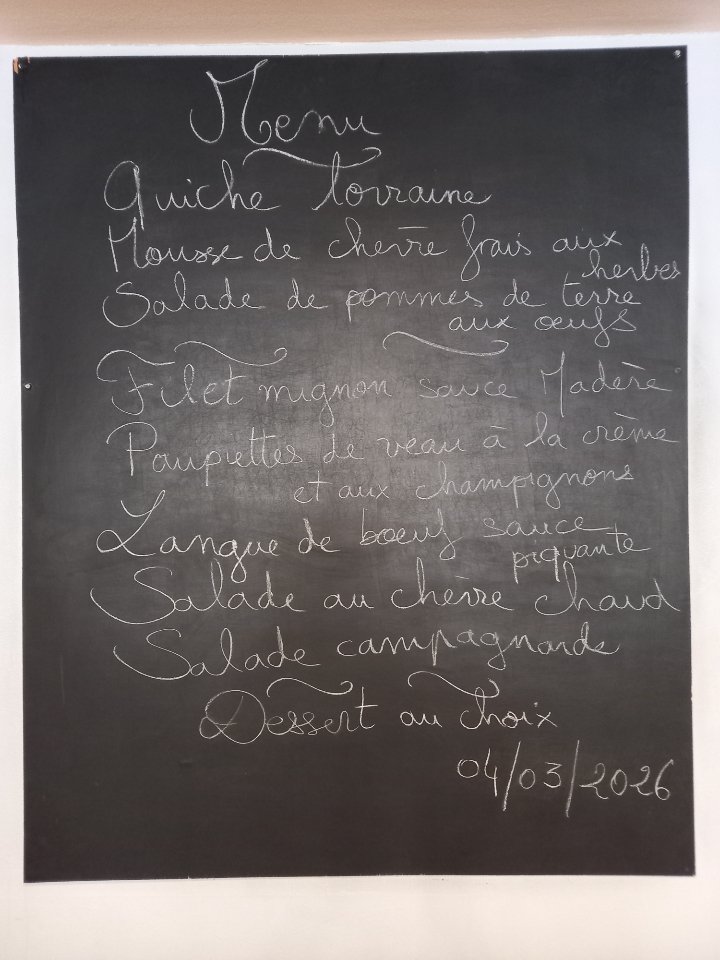 Menu
Quiche lorraine
Mousse de chèvre frais aux
herbes
Salade de pommes de terre
aux œufs
Filet mignon sauce Madère
Paupiettes de veau à la crème
et aux champignons
Langue de bœuf sauce
piquante
Salade au chèvre chaud
Salade campagnarde
Dessert au choix
04/03/2026